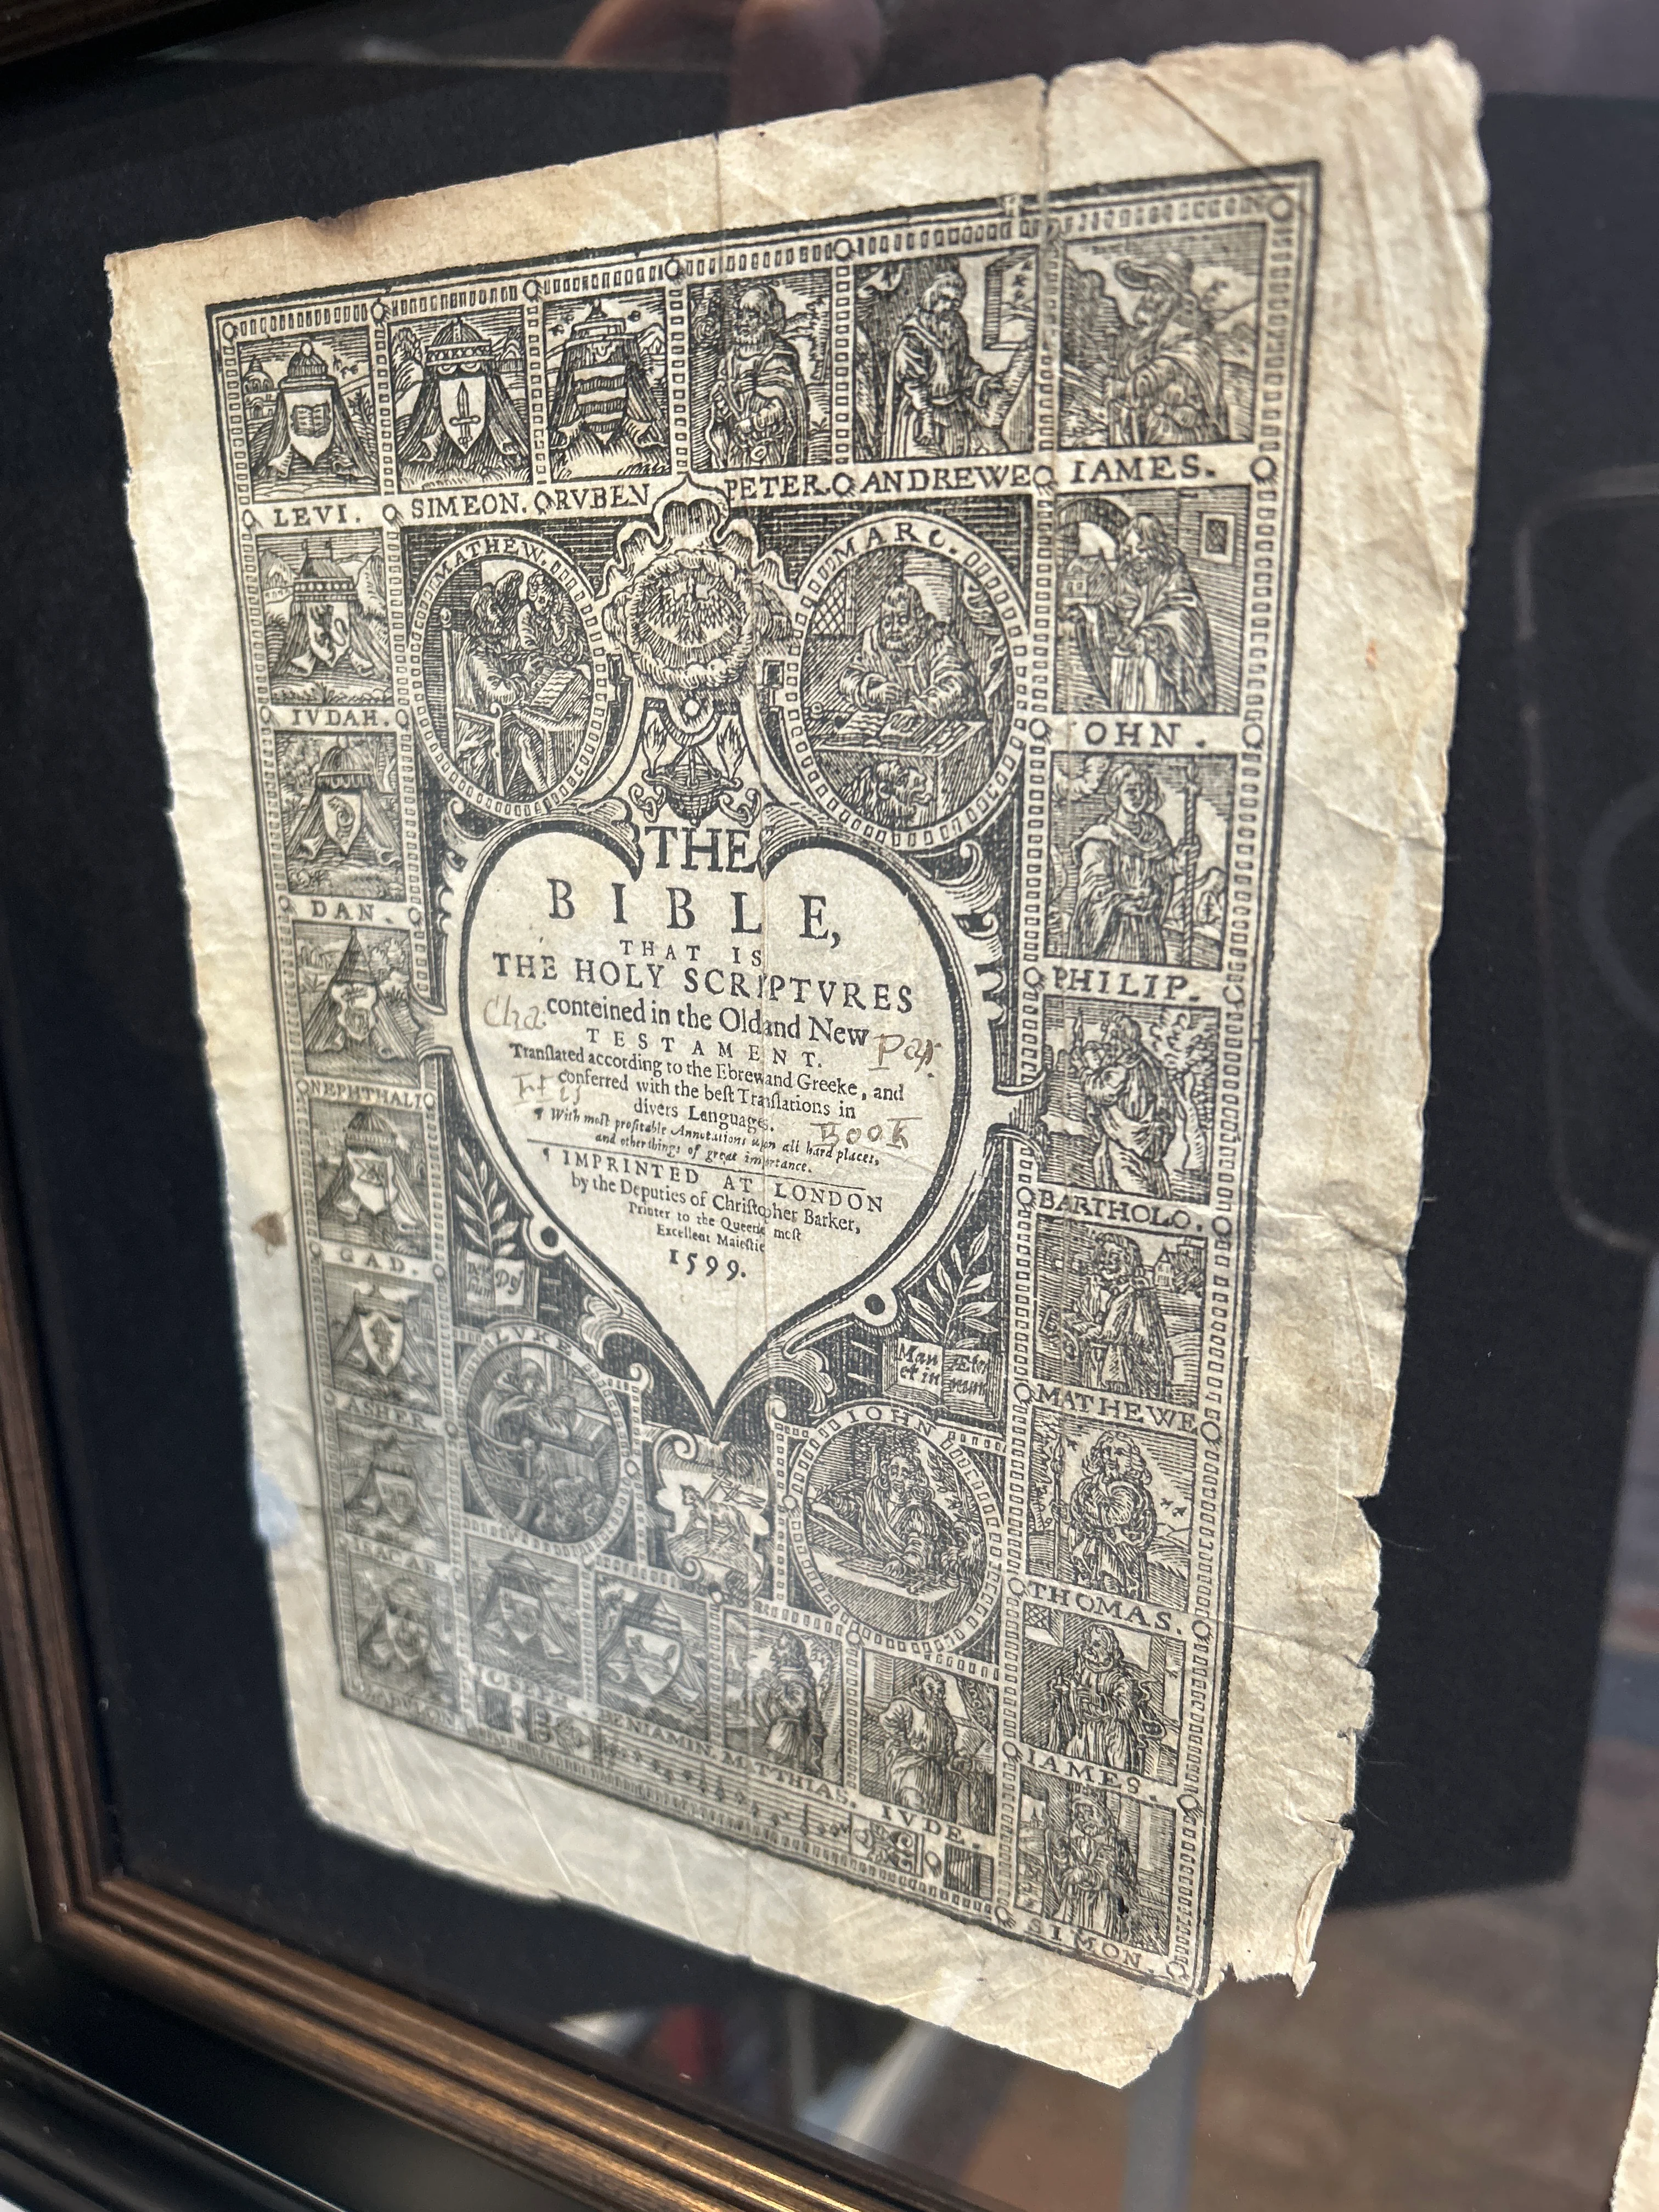 LEVI. SIMEON. RVBEN PETER ANDREWE IAMES.
MATHEW. MARC.
IVDAH. IOHN.
DAN. PHILIP.
NEPHTHALI BARTHOLO.
GAD. MATHEWE
ASHER THOMAS.
THE
BIBLE,
THAT IS
THE HOLY SCRIPTVRES
conteined in the Old and New
Cha. Par.
TESTAMENT.
Tranſlated according to the Ebrew and Greeke, and
conferred with the beſt Tranſlations in
divers Languages.
Book
¶ With moſt profitable Annotations upon all hard places,
and other things of great importance.
¶ IMPRINTED AT LONDON
by the Deputies of Chriſtopher Barker,
Printer to the Queenes moſt
Excellent Maieſtie
1599.
LVKE IOHN
Man et in Æter num
IOSEPH. BENIAMIN. MATTHIAS. IVDE. IAMES.
SIMON.